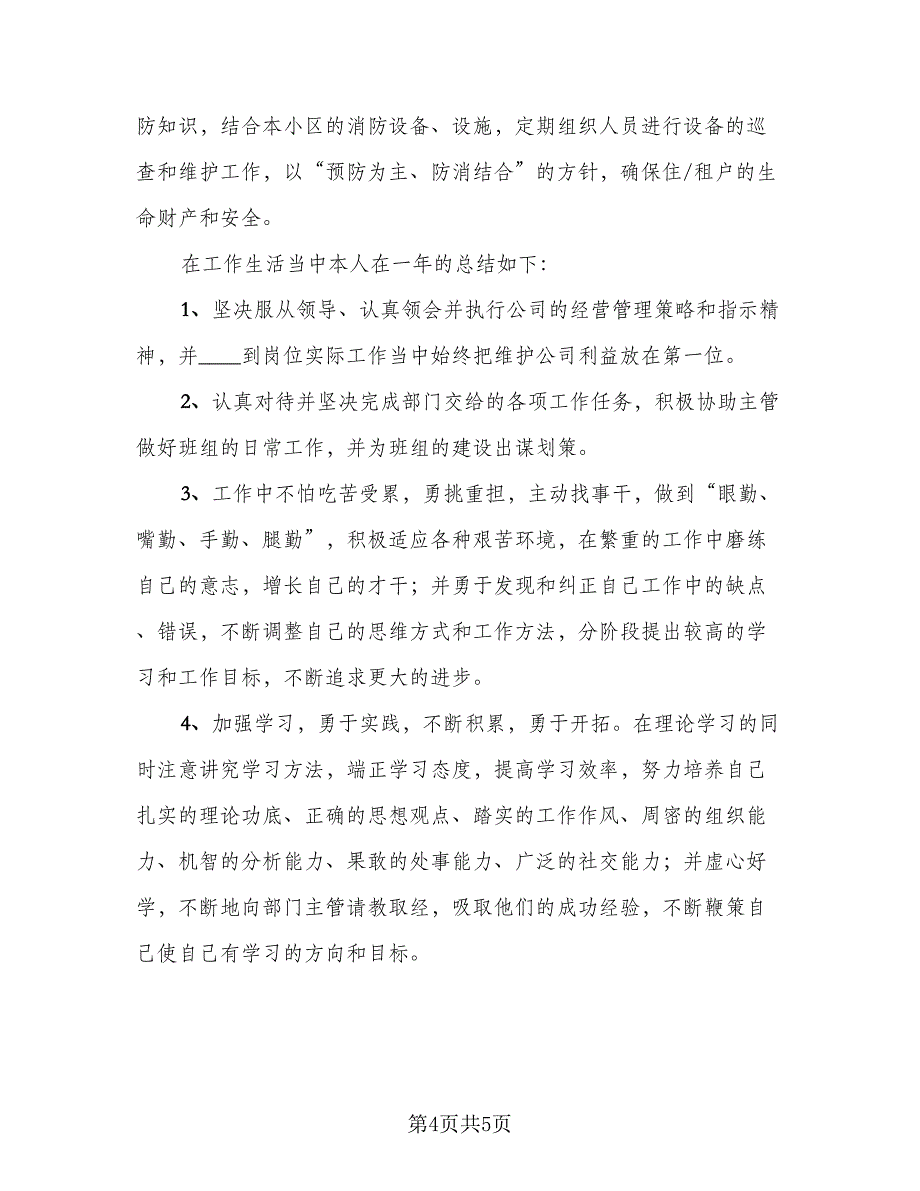 防知识，结合本小区的消防设备、设施，定期组织人员进行设备的巡
查和维护工作，以“预防为主、防消结合”的方针，确保住/租户的生
命财产和安全。
在工作生活当中本人在一年的总结如下：
1、坚决服从领导、认真领会并执行公司的经营管理策略和指示精
神，并____到岗位实际工作当中始终把维护公司利益放在第一位。
2、认真对待并坚决完成部门交给的各项工作任务，积极协助主管
做好班组的日常工作，并为班组的建设出谋划策。
3、工作中不怕吃苦受累，勇挑重担，主动找事干，做到“眼勤、
嘴勤、手勤、腿勤”，积极适应各种艰苦环境，在繁重的工作中磨练
自己的意志，增长自己的才干；并勇于发现和纠正自己工作中的缺点
、错误，不断调整自己的思维方式和工作方法，分阶段提出较高的学
习和工作目标，不断追求更大的进步。
4、加强学习，勇于实践，不断积累，勇于开拓。在理论学习的同
时注意讲究学习方法，端正学习态度，提高学习效率，努力培养自己
扎实的理论功底、正确的思想观点、踏实的工作作风、周密的组织能
力、机智的分析能力、果敢的处事能力、广泛的社交能力；并虚心好
学，不断地向部门主管请教取经，吸取他们的成功经验，不断鞭策自
己使自己有学习的方向和目标。
第4页共5页